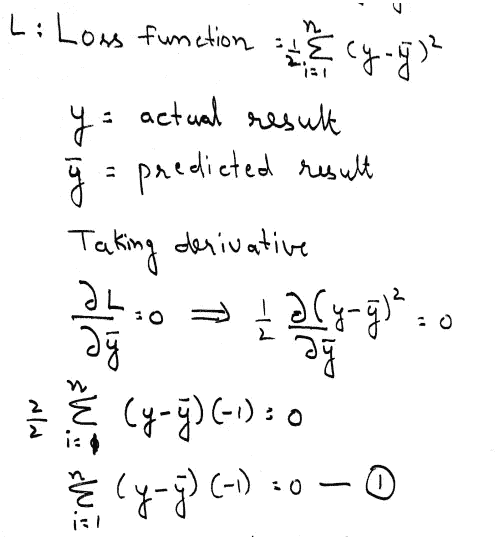 L : Loss function = 1/2 Σ_{i=1}^{n} (y - ȳ)²
y = actual result
ȳ = predicted result
Taking derivative
∂L/∂ȳ = 0 ⇒ 1/2 ∂(y - ȳ)²/∂ȳ = 0
2/2 Σ_{i=1}^{n} (y - ȳ) (-1) = 0
Σ_{i=1}^{n} (y - ȳ) (-1) = 0 — ①